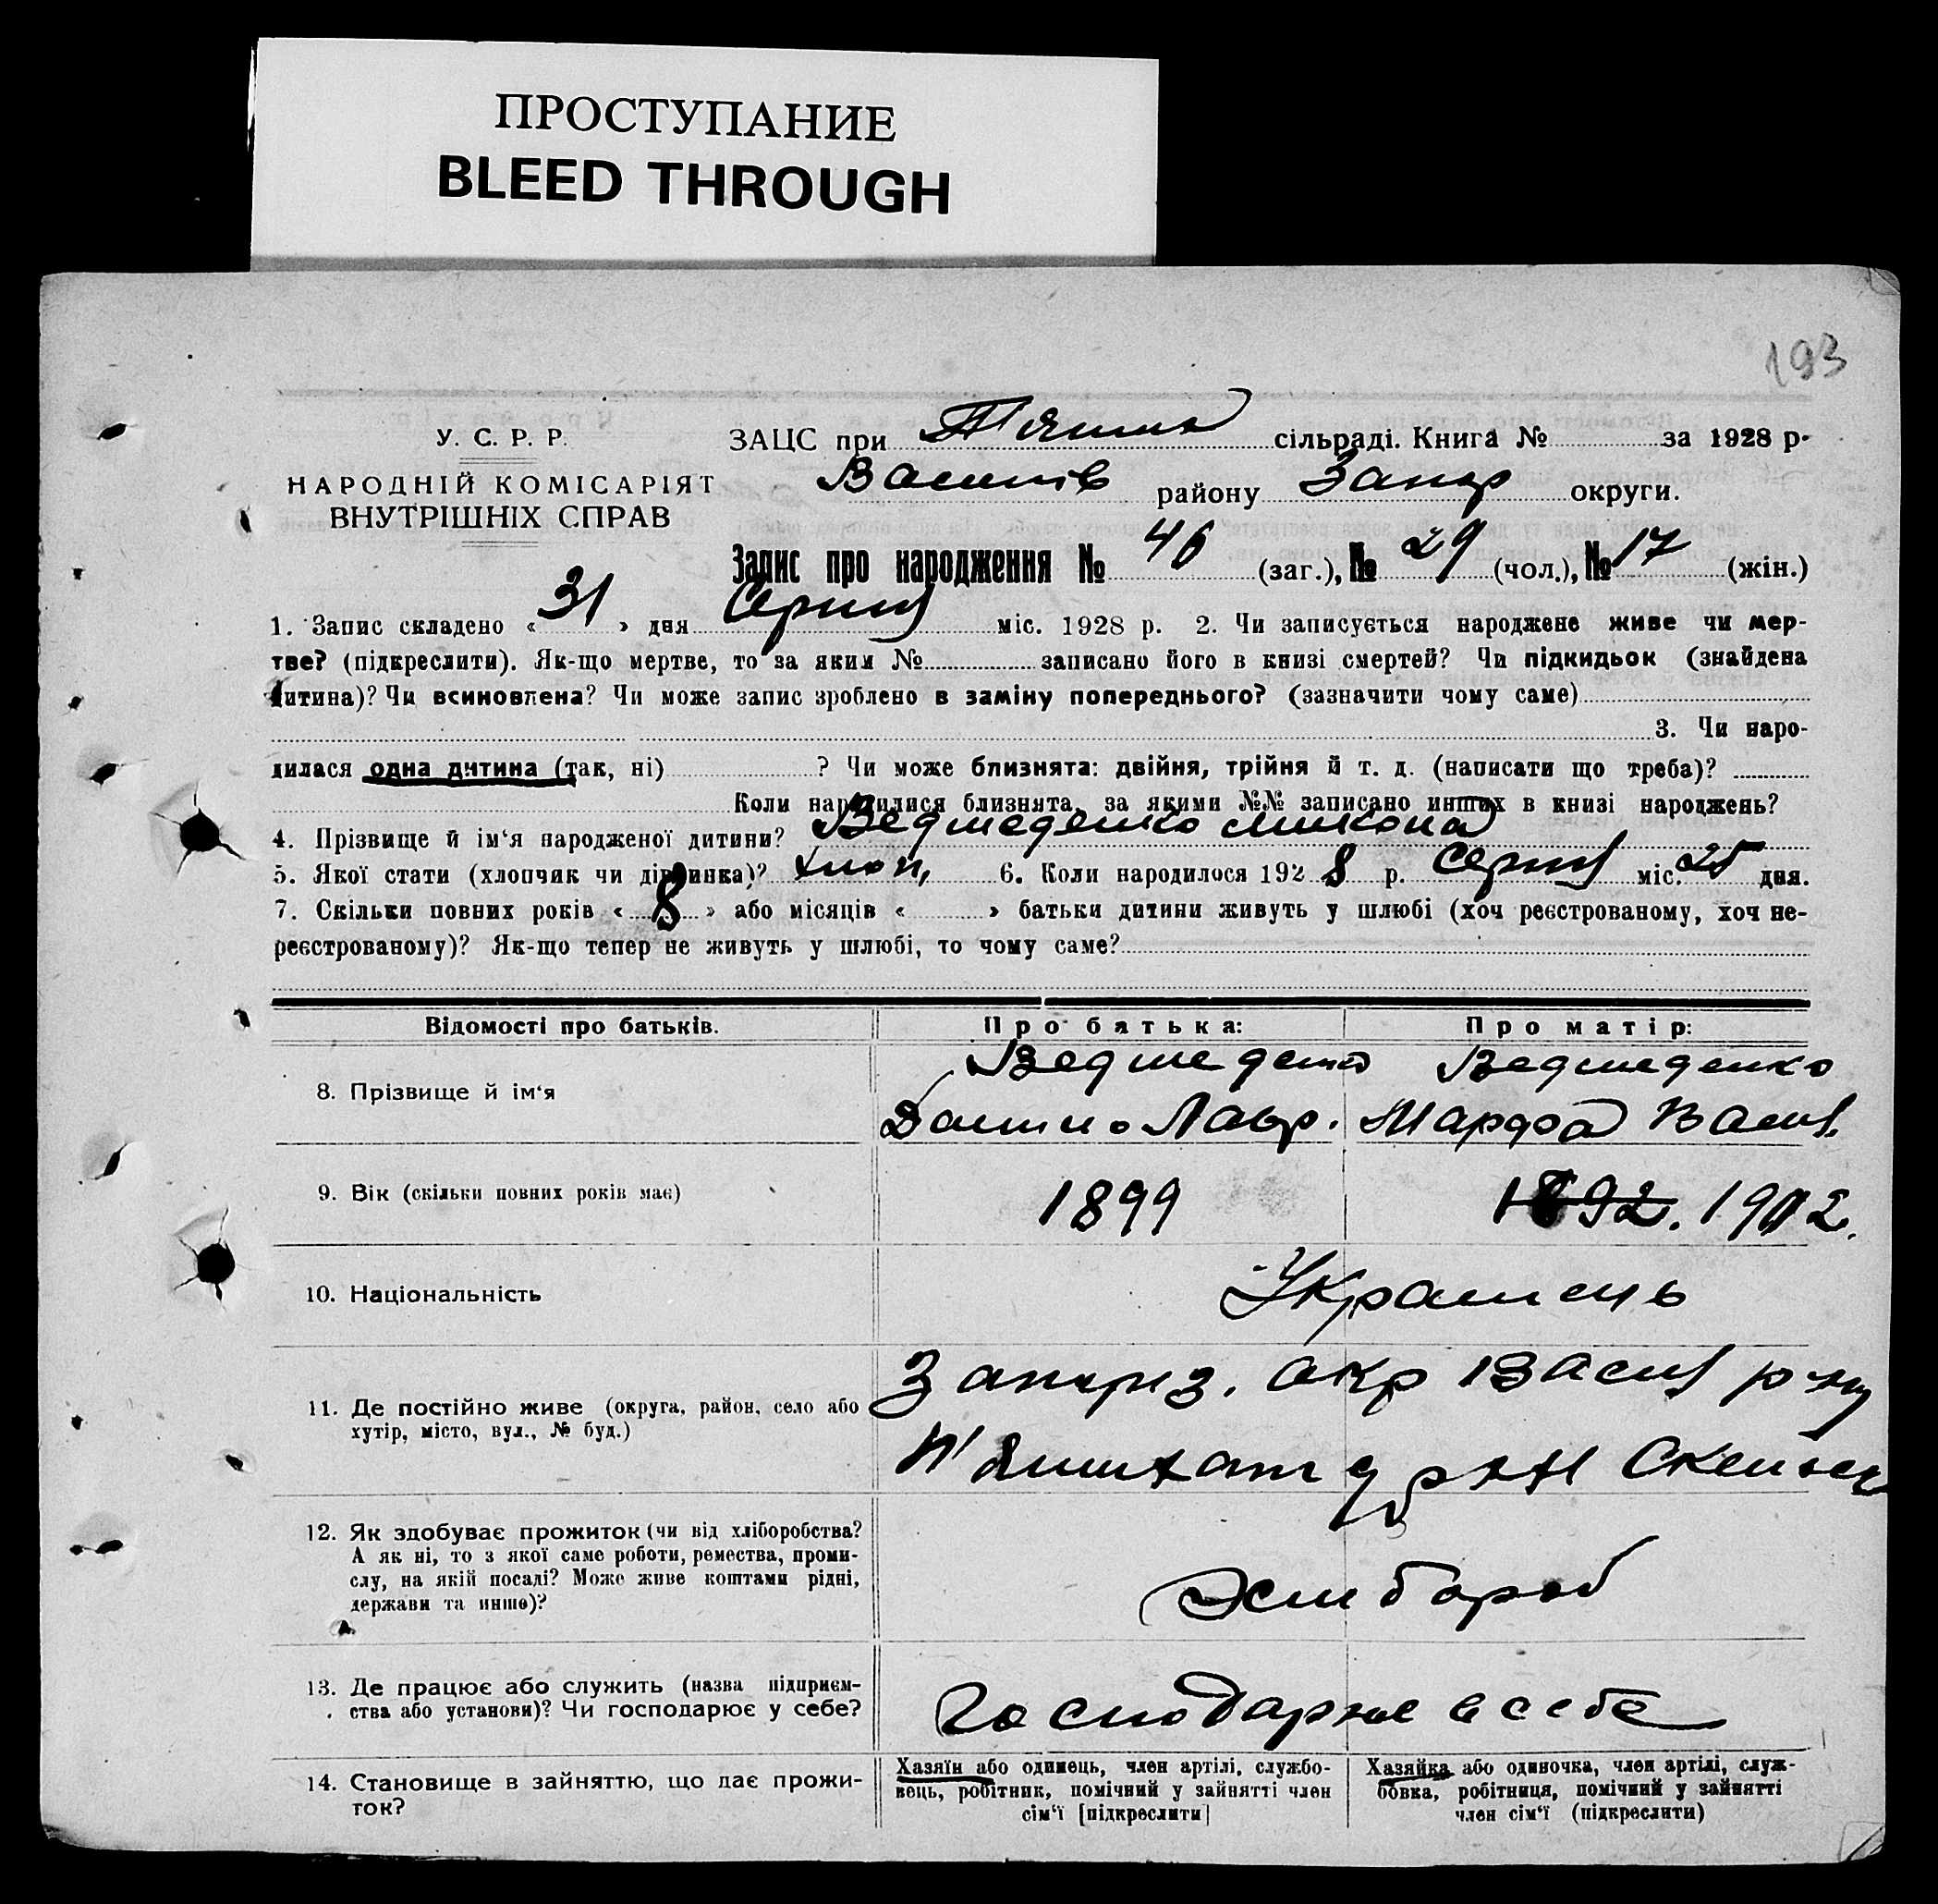 ПРОСТУПАНИЕ
BLEED THROUGH
193
У. С. Р. Р.
НАРОДНІЙ КОМІСАРІЯТ
ВНУТРІШНІХ СПРАВ
ЗАЦС при сільраді. Книга № за 1928 р.
Василів району Запор округи.
Запис про народження № 46 (заг.), № 29 (чол.), № 17 (жін.)
1. Запис складено « 31 » дня Серпня міс. 1928 р. 2. Чи записується народжене живе чи мер-
тве? (підкреслити). Як-що мертве, то за яким № записано його в книзі смертей? Чи підкидьок (знайдена
дитина)? Чи всиновлена? Чи може запис зроблено в заміну попереднього? (зазначити чому саме)
3. Чи наро-
дилася одна дитина (так, ні) ? Чи може близнята: двійня, трійня й т. д. (написати що треба)?
Коли народилися близнята, за якими №№ записано инших в книзі народжень?
4. Прізвище й ім‘я народженої дитини? Ведмеденко Микола
5. Якої стати (хлопчик чи дівчинка)? хлоп, 6. Коли народилося 192 8 р. Серпня міс. 25 дня.
7. Скільки повних років « 8 » або місяців « » батьки дитини живуть у шлюбі (хоч реєстрованому, хоч не-
реєстрованому)? Як-що тепер не живуть у шлюбі, то чому саме?
Відомості про батьків.
Про батька:
Про матір:
8. Прізвище й ім‘я
Ведмеденко
Лавр.
Ведмеденко
Марфа Васил.
9. Вік (скільки повних років має)
1899
1892. 1902.
10. Національність
Українець
11. Де постійно живе (округа, район, село або
хутір, місто, вул., № буд.)
Запориз. окр Васил р-ну
П'ятихат
12. Як здобуває прожиток (чи від хліборобства?
А як ні, то з якої саме роботи, ремества, проми-
слу, на якій посаді? Може живе коштами рідні,
держави та инше)?
Хлибороб
13. Де працює або служить (назва підприєм-
ства або установи)? Чи господарює у себе?
Господарює в себе
14. Становище в зайняттю, що дає прожи-
ток?
Хазяїн або одинець, член артілі, службо-
вець, робітник, помічний у зайнятті член
сім‘ї [підкреслити]
Хазяйка або одиночка, член артілі, служ-
бовка, робітниця, помічний у зайнятті
член сім‘ї (підкреслити)